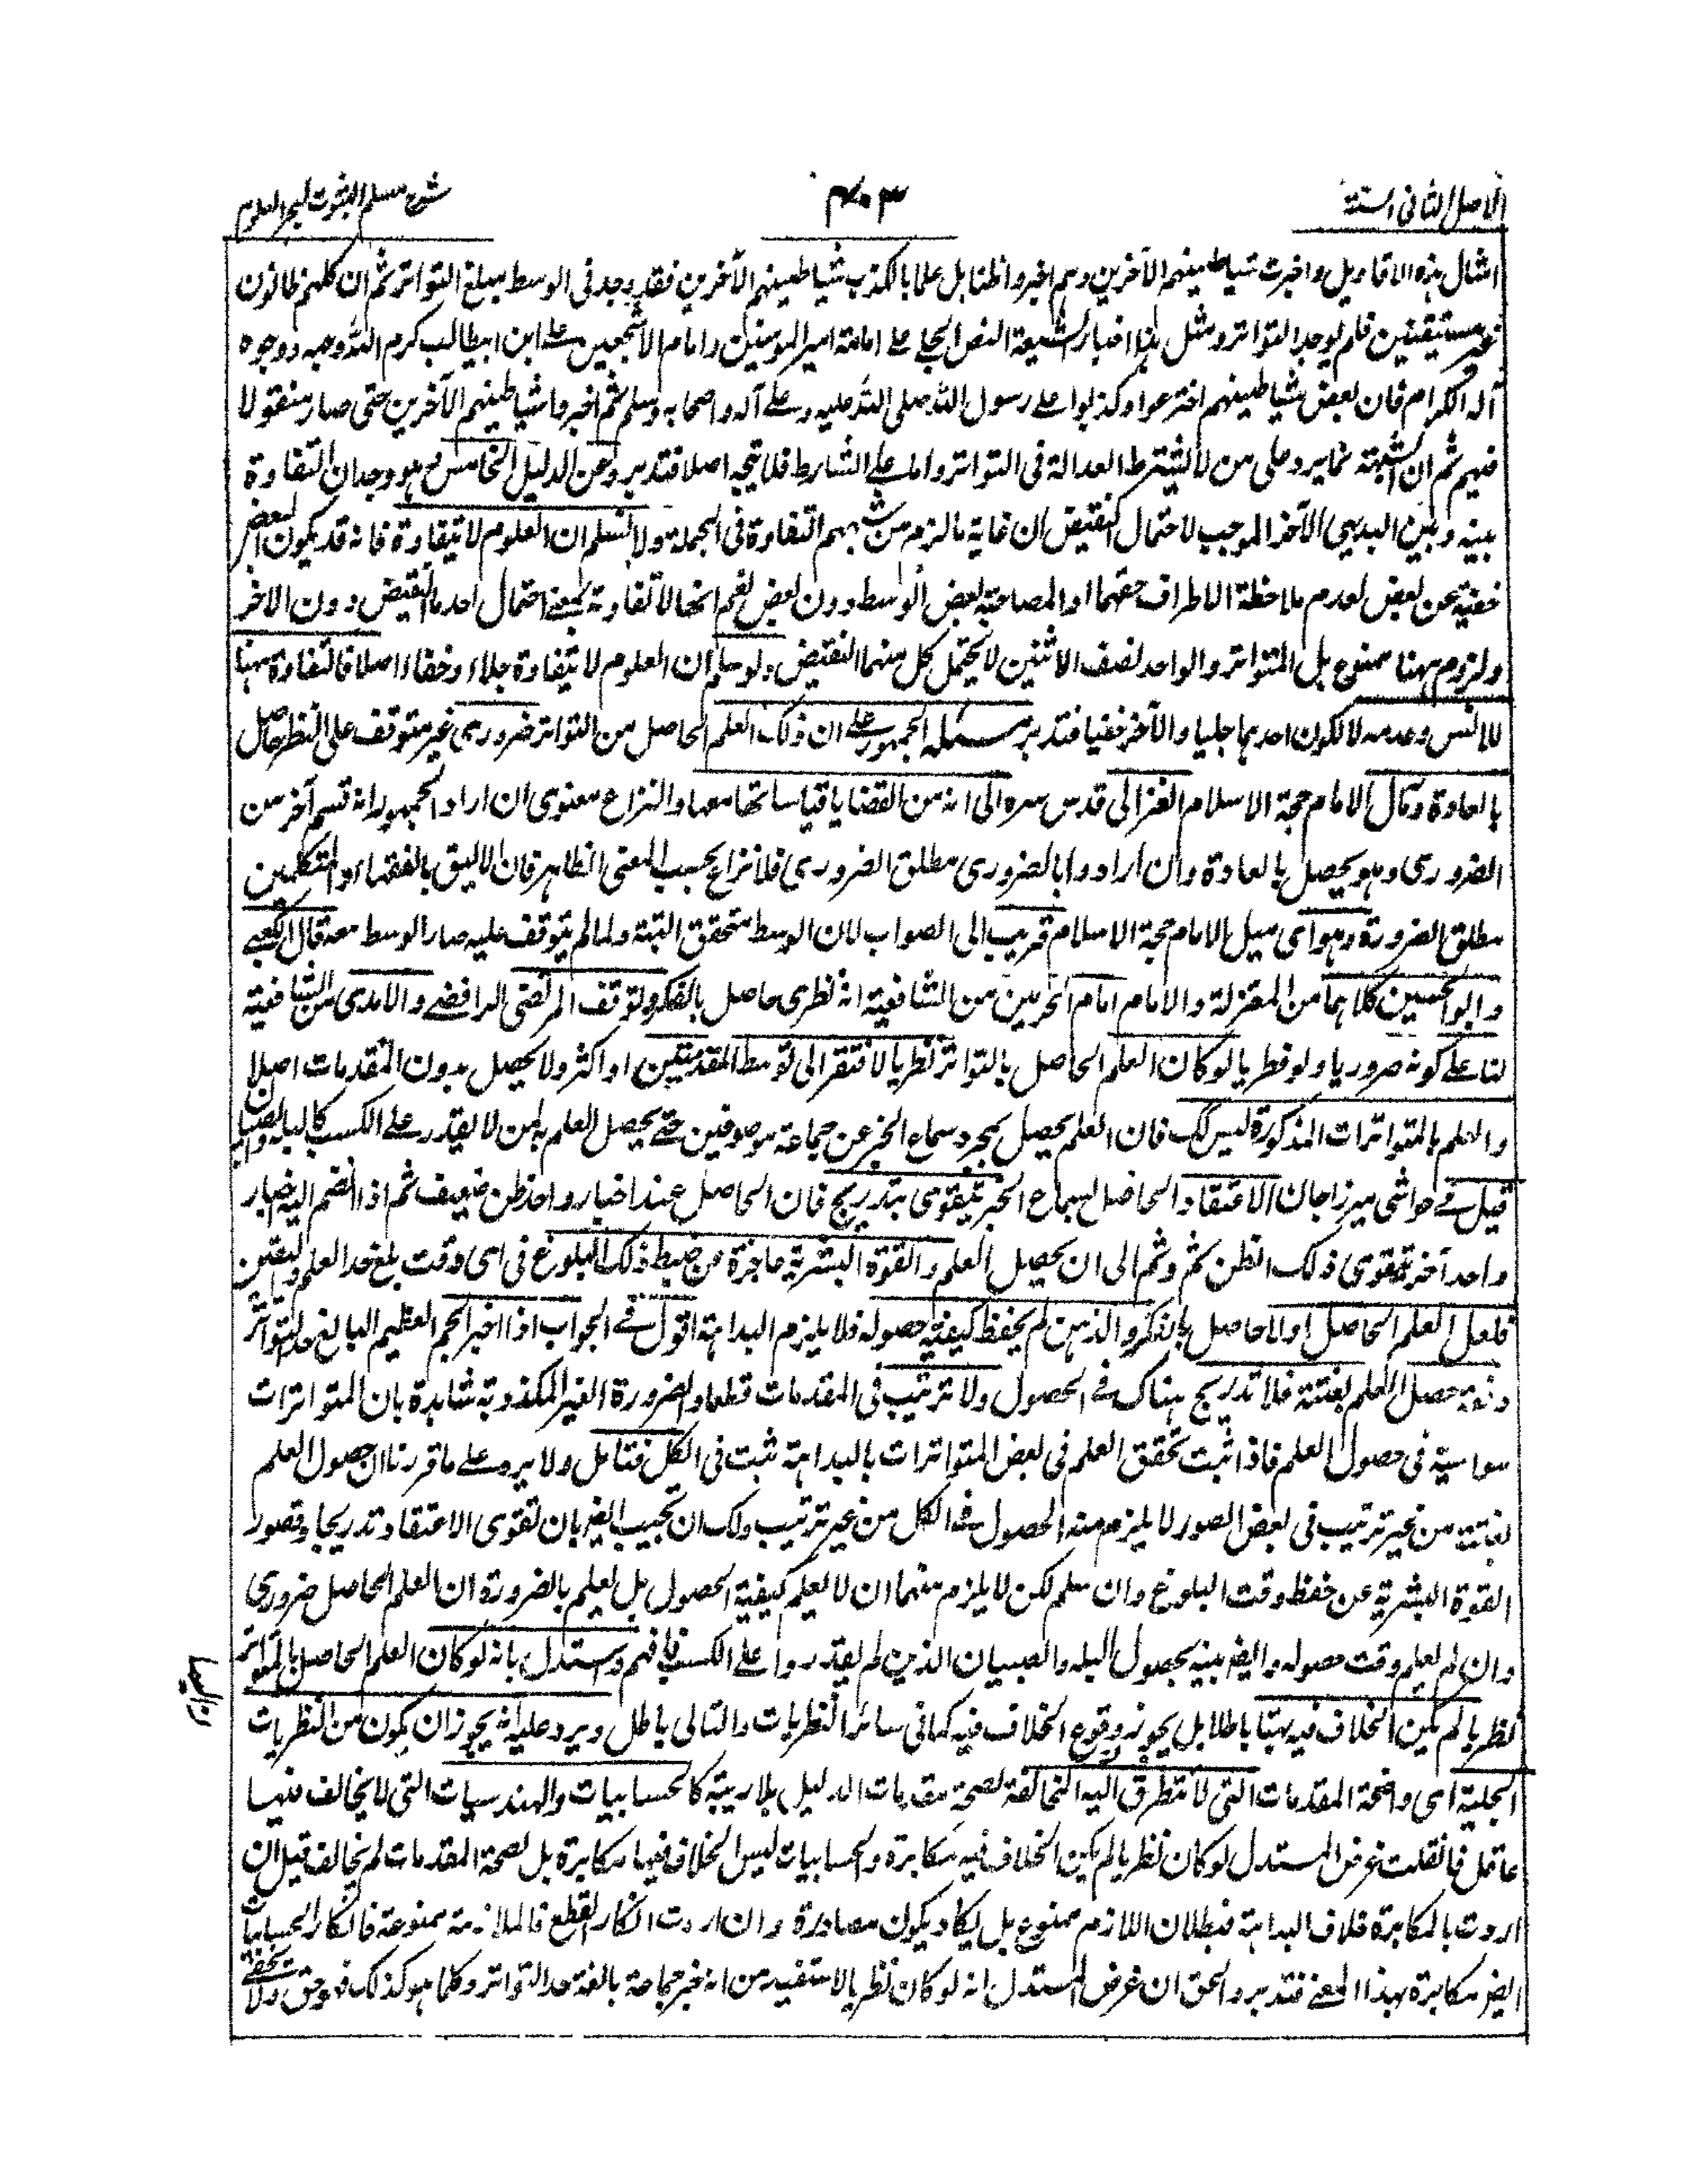 الاصل الثانى السنة
٤٠٣
شرح مسلم الثبوت لبحر العلوم
امثال هذه الاقاويل واخبرت شياطينهم الآخرين وهم اخبروا ظنا بل علما بالكذب شياطينهم الآخرين فقد وجد فى الوسط مبلغ التواتر ثم ان كلهم ظانون
غير مستيقنين فلم يوجد التواتر ومثل هذا اخبار الشيعة النص الجلى على امامة امير المومنين وامام الاشجعين على ابن ابيطالب كرم الله وجهه ووجوه
آله الكرام فان بعض شياطينهم اخترعوا وكذبوا على رسول الله صلى الله عليه وعلى آله واصحابه وسلم ثم اخبروا شياطينهم الآخرين حتى صار منقولا
فيهم ثم ان الشبهة انما يرد على من لا يشترط العدالة فى التواتر واما على الشارط فلا يتجه اصلا فتدبر وعن الدليل الخامس وهو وجدان التفاوة
بينه وبين البديهى الآخر الموجب لاحتمال النقيض ان غاية ما لزم من شبههم التفاوة فى الجملة ولا نسلم ان العلوم لا يتفاوة فانه قد يكون البعض
خفية عن بعض لعدم ملاحظة الاطراف حقها او المصاحبة لبعض الوسط دون بعض نعم انها لا تفاوته بمعنى احتمال احدها النقيض دون الاخر
ولزومه ههنا ممنوع بل المتواتر والواحد نصف الاثنين لا يحتمل كل منهما النقيض ولو سلم ان العلوم لا يتفاوة جلاء وخفاء اصلا فالتفاوة ههنا
للانس وعدمه لا لكون احدهما جليا والآخر خفيا فتدبر مسئلة الجمهور على ان ذلك العلم الحاصل من التواتر ضرورى غير متوقف على النظر حاصل
بالعادة ومال الامام حجة الاسلام الغزالى قدس سره الى انه من القضايا قياساتها معها والنزاع معنوى ان اراد الجمهور انه قسم آخر من
الضرورى وهو يحصل بالعادة وان ارادوا بالضرورى مطلق الضرورى فلا نزاع بحسب المعنى الظاهر فان الاليق بالفقهاء والمتكلمين
مطلق الضرورة وهو اى ميل الامام حجة الاسلام قريب الى الصواب لان الوسط متحقق البتة ولما لم يتوقف عليه صار الوسط معه قال الكعبى
وابو الحسين كلاهما من المعتزلة والامام امام الحرمين من الشافعية انه نظرى حاصل بالفكر وتوقف المرتضى الرافضى والآمدى من الشافعية
لنا على كونه ضروريا ولو فطريا لو كان العلم الحاصل بالتواتر نظريا لافتقر الى توسط المقدمتين او اكثر ولا يحصل بدون المقدمات اصلا
والعلم بالمتواترات المذكورة ليس كك فان العلم يحصل بمجرد سماع الخبر عن جماعة موصوفين حتى يحصل العلم به لمن لا يقدر على الكسب كالبله والصبيان
قيل فى حواشى ميرزا جان الاعتقاد الحاصل بسماع الخبر يتقوى بتدريج فان الحاصل عند اخبار واحد ظن ضعيف ثم اذا انضم اليه اخبار
واحد آخر تقوى ذلك الظن ثم وثم الى ان يحصل العلم والقوة البشرية عاجزة من ضبط ذلك البلوغ فى اى وقت بلغ حد العلم واليقين
فلعل العلم الحاصل اولا حاصل بالفكر والذهن لم يحفظ كيفية حصوله فلا يلزم البداهة اقول فى الجواب اذا اخبر الجم العظيم البالغ حد التواتر
دفعة حصل العلم بغتة فلا تدريج هناك فى الحصول ولا ترتيب فى المقدمات قطعا والضرورة الغير المكذوبة شاهدة بان المتواترات
سواسية فى حصول العلم فاذا ثبت تحقق العلم فى بعض المتواترات بالبداهة ثبت فى الكل فتامل ولا يرد على ما قررنا ان حصول العلم
بغتة من غير ترتيب فى بعض الصور لا يلزم منه الحصول فى الكل من غير ترتيب ولك ان تجيب ايضا بان تقوى الاعتقاد تدريجا وقصور
القوة البشرية عن حفظ وقت البلوغ وان سلم لكن لا يلزم منهما ان لا يعلم كيفية الحصول بل يعلم بالضرورة ان العلم الحاصل ضرورى
وان لم يعلم وقت حصوله وايضا بينه بحصول البله والصبيان الذين لم يقدروا على الكسب فافهم واستدل بانه لو كان العلم الحاصل بالمتواتر
نظريا لم يكن الخلاف فيه بهتا باطلا بل يجوز وقوع الخلاف فيه كما فى سائر النظريات والتالى باطل ويرد عليه انه يجوز ان يكون من النظريات
الجلية اى واضحة المقدمات التى لا تتطرق اليه المخالفة لصحة مقدمات الدليل بلا ريبة كالحسابيات والهندسيات التى لا يخالف فيها
عاقل فان قلت غرض المستدل لو كان نظريا لم يكن الخلاف فيه مكابرة والحسابيات ليس الخلاف فيها مكابرة بل لصحة المقدمات لم يخالف قيل ان
اردت بالمكابرة خلاف البداهة فبطلان اللازم ممنوع بل يكاد يكون مصادرة وان اردت انكار القطع فالملازمة ممنوعة فانكار الحسابيات
ايضا مكابرة بهذا المعنى فتدبر والحق ان غرض المستدل انه لو كان نظريا لاستفيد من انه خبر جماعة بالغة حد التواتر وكلما هو كذلك فهو حق ولا يخفى